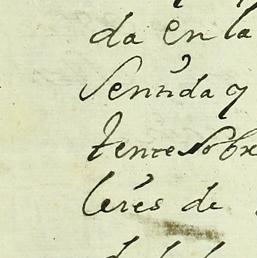 da en la
sentida y
tente sobre
leres de